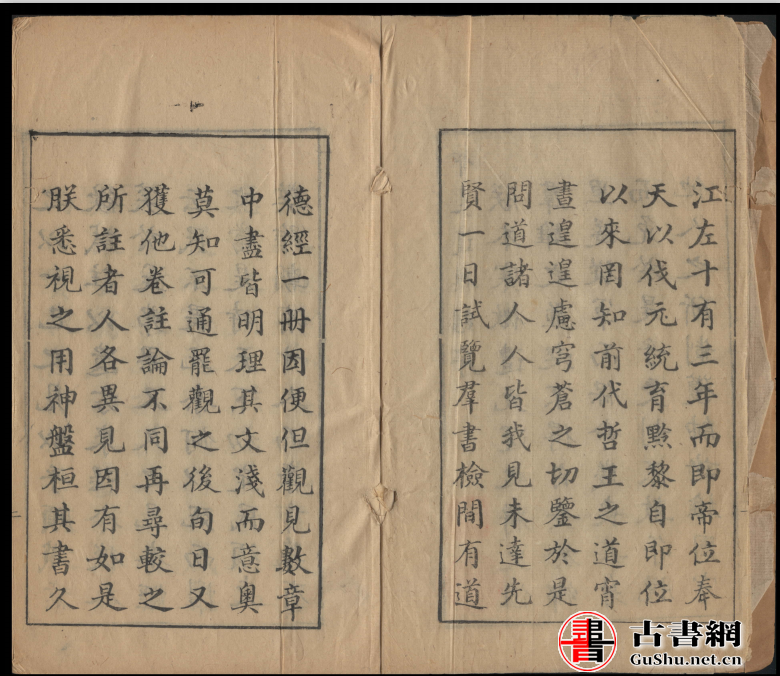 江左十有三年而即帝位奉
天以伐元統育黔黎自即位
以來罔知前代哲王之道宵
晝遑遑慮穹蒼之切鑒於是
問道諸人人皆我見未達先
賢一日試覽羣書檢間有道
德經一冊因便但觀見數章
中盡皆明理其文淺而意奧
莫知可通罷觀之後旬日又
獲他卷註論不同再尋較之
所註者人各異見因有如是
朕悉視之用神盤桓其書久
書 古書網
GuShu.net.cn